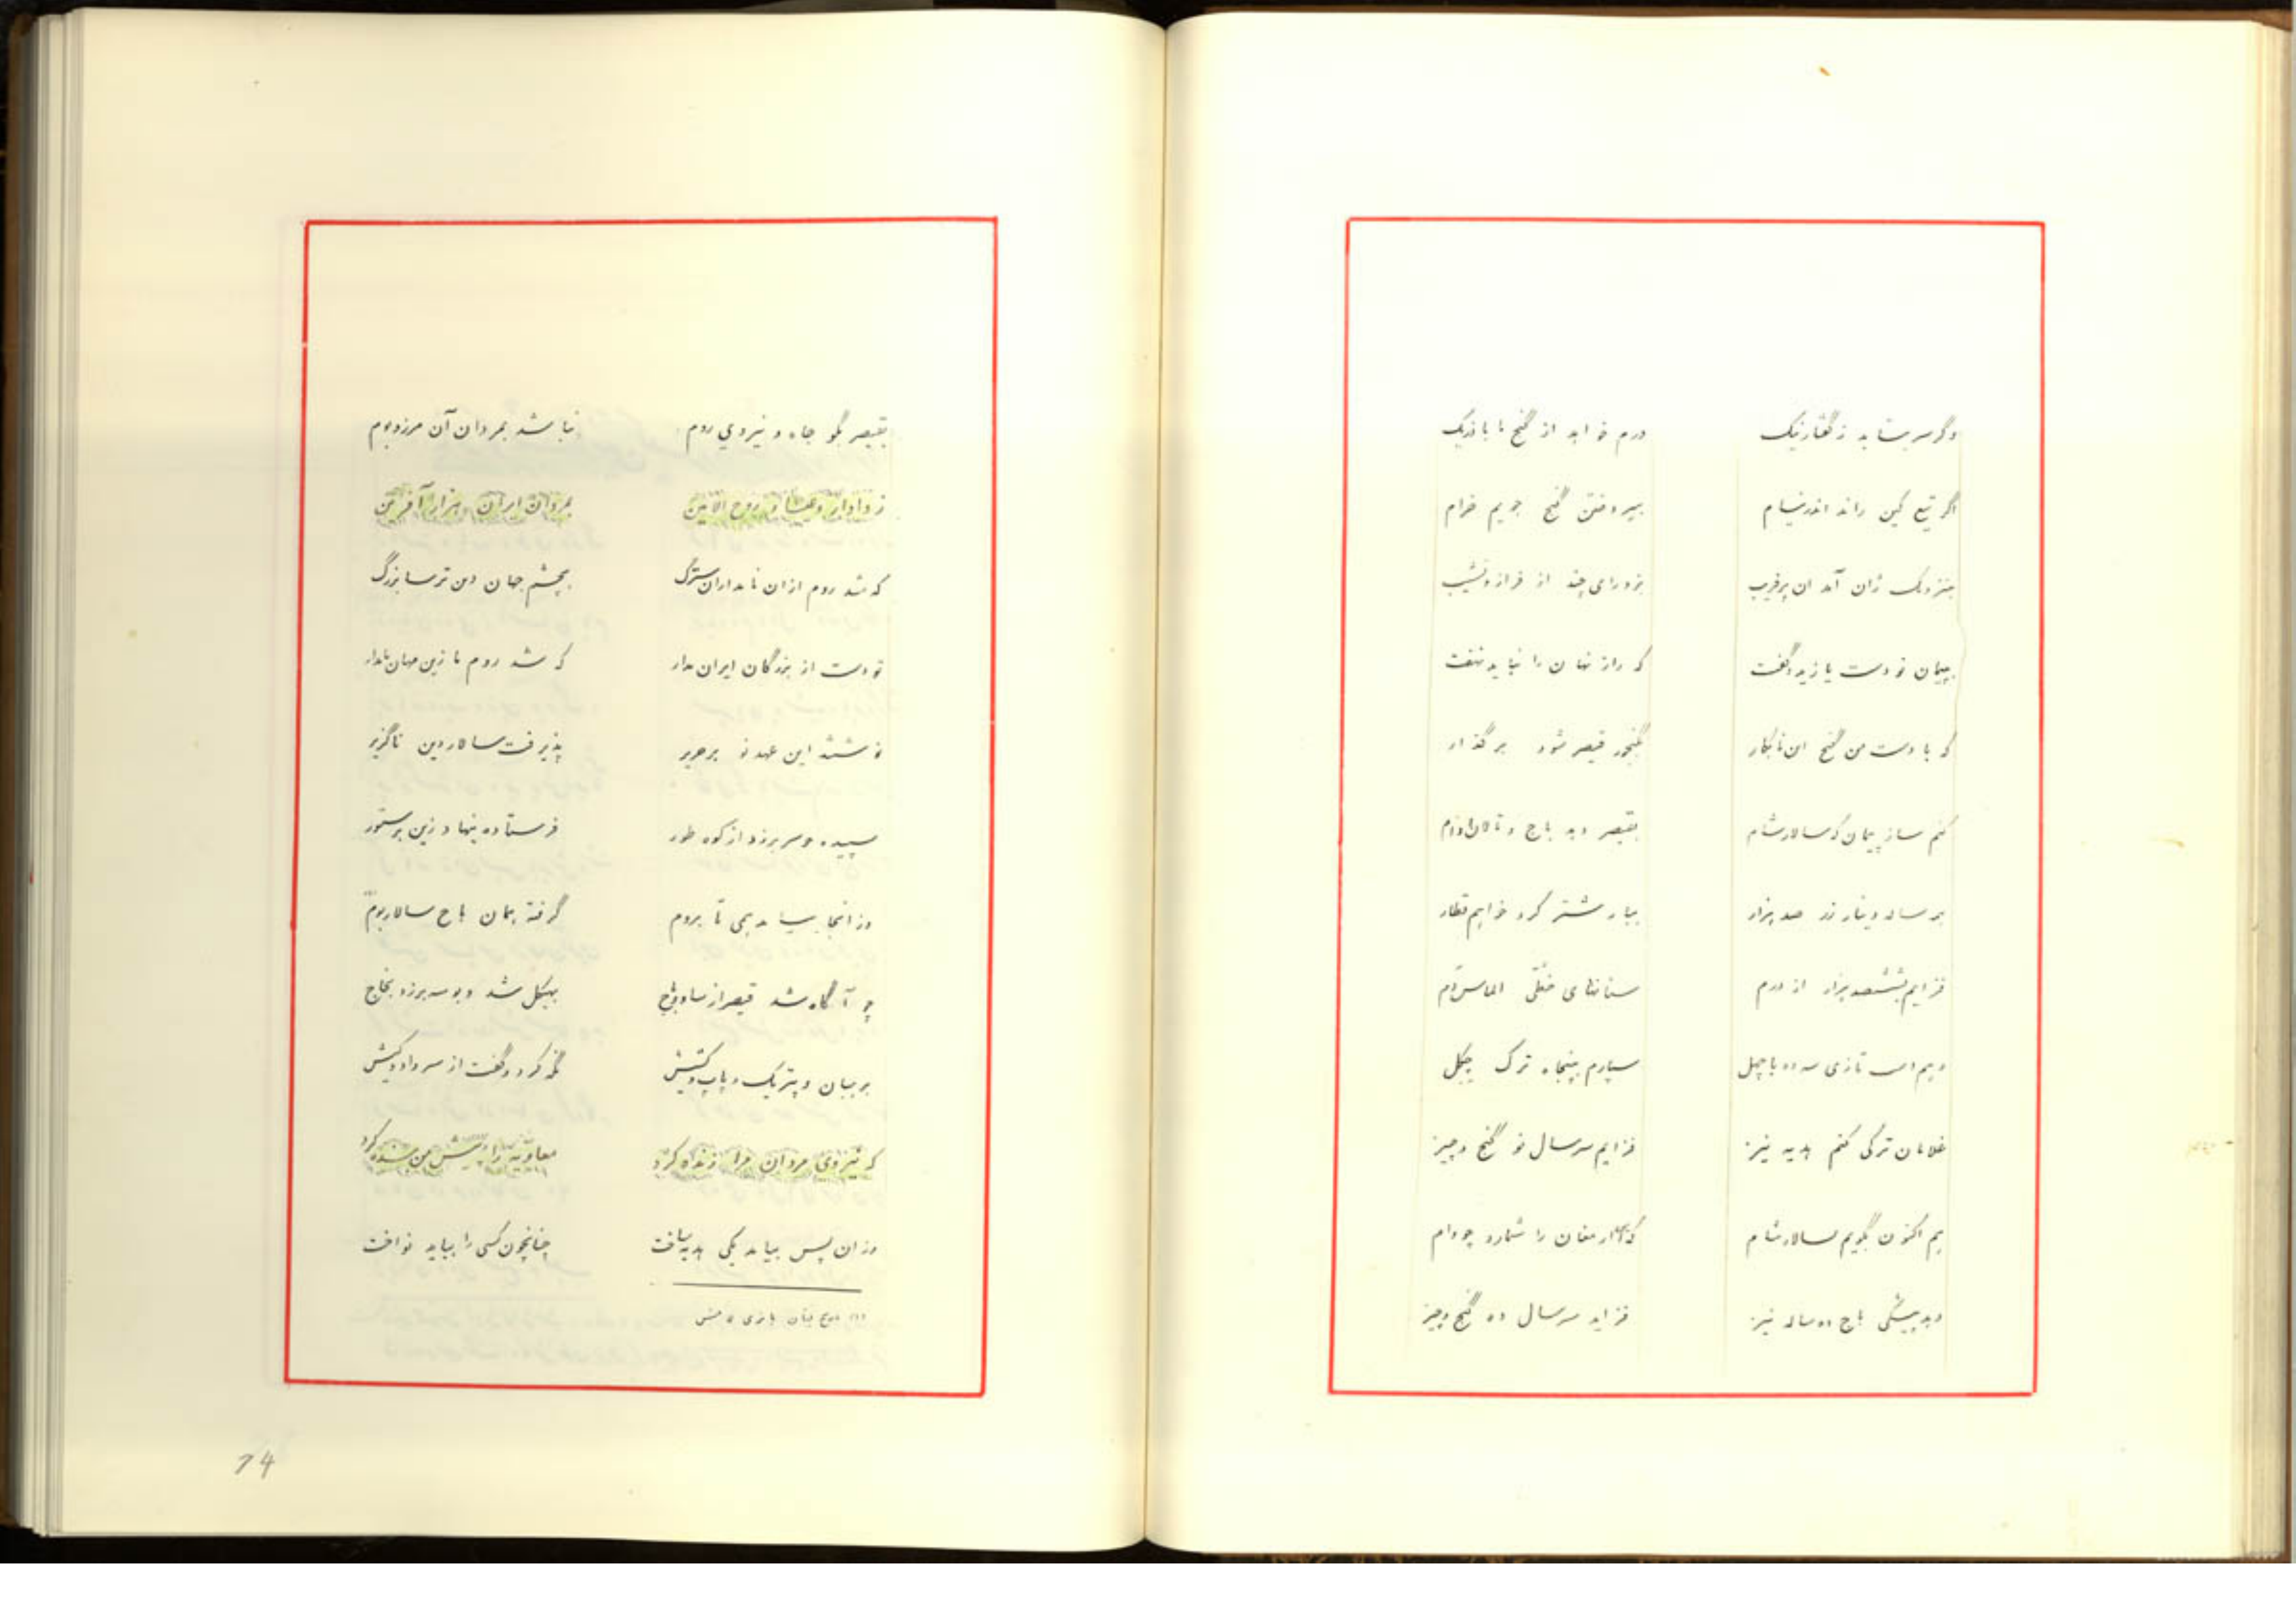 وگر سر بتابد ز گفتار نیک درم خواهد از گنج ما با فریک
اگر تیغ کین راند اندر نیام بپیروفتن گنج جویم خرام
بنزدیک ژان آمد ان پرفریب بزد رای چند از فراز و نشیب
بپیمان نو دست یازید و گفت که راز نهان را نباید نهفت
که با دست من گنج ان نابکار بگنجور قیصر شود برگذار
کنم ساز پیمان که سالار شام بقیصر دهد باج و تالان و وام
بهر ساله دینار زر صد هزار ببار شتر کرد خواهم قطار
فزایم بششصد هزار از درم سنانهای ختلی
دهم اسب تازی سه ده با چهل سپارم پنجاه ترک چگل
غلامان ترکی کنم هدیه نیز فزایم سر سال نو گنج و چیز
هم اکنون بگویم بسالار شام که ارمغان را شمارد چو وام
دهد پیشکی باج ده ساله نیز فزاید سر سال ده گنج و چیز
بقیصر بگو جاه و نیروی روم نباشد بمردان آن مرز و بوم
ز دادار و عیسا و روح الامین بمردان ایران هزار آفرین
که شد روم ازان نامداران سترگ بچشم جهان دین ترسا بزرگ
تو دست از بزرگان ایران مدار که شد روم ما زین مهان نامدار
نوشتند این عهد نو بر حریر پذیرفت سالار دین ناگزیر
سپیده چو سر برزد از کوه طور فرستاده بنهاد زین بر ستور
وز انجا بیامد همی تا بروم گرفته بمان باج سالار بوم
چو آگاه شد قیصر از ساو و باج بهیکل شد و بوسه برزد بخاج
برهبان و پتریک و پاپ و کشیش نگه کرد و گفت از سر داد و کیش
که نیروی مردان مرا زنده کرد معاویه را پیش من بنده کرد
وزان پس بباید یکی هدیه ساخت چنانچون کسی را بباید نواخت
74